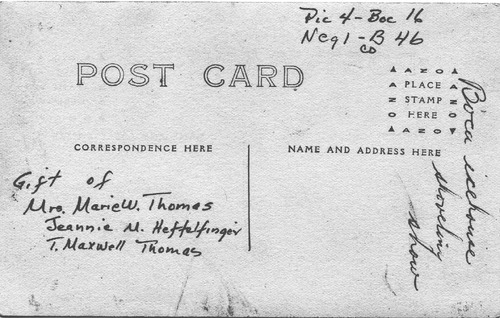 Pic 4 - Boc 16
Neg 1 - B 46
CO
POST CARD
AZO
PLACE
STAMP
HERE
AZO
CORRESPONDENCE HERE
NAME AND ADDRESS HERE
Gift of
Mrs. Marie W. Thomas
Jeannie M. Heffelfinger
T. Maxwell Thomas
Boca icehouse
shoveling
snow